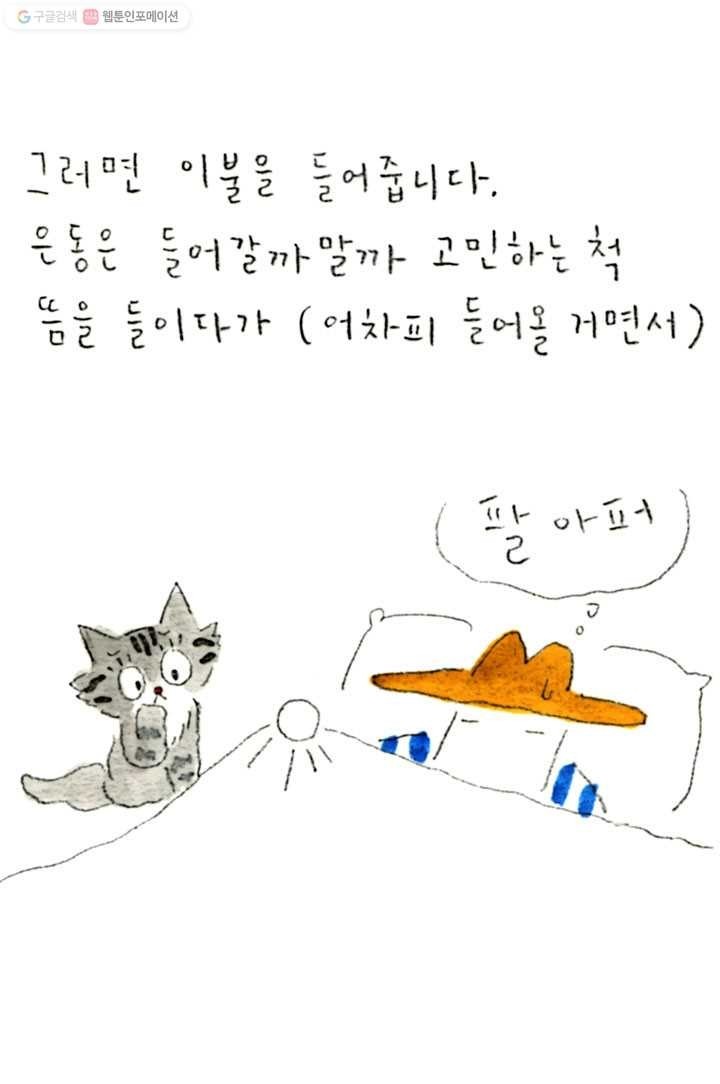 구글검색 웹툰인포메이션
그러면 이불을 들어줍니다.
은동은 들어갈까말까 고민하는 척
뜸을 들이다가 (어차피 들어올 거면서)
팔 아퍼